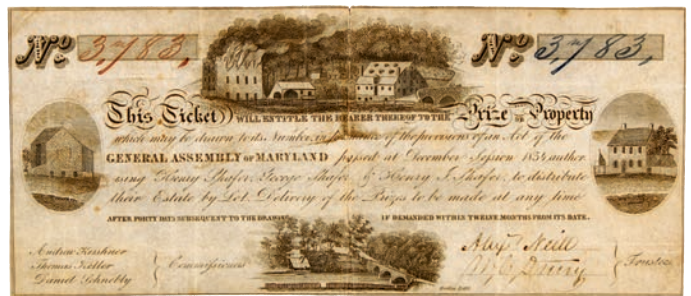 No. 3,783, No. 3,783,
This Ticket WILL ENTITLE THE BEARER THEREOF TO THE Prize of Property
which may be drawn to its Number, in of the provisions of an Act of the
GENERAL ASSEMBLY OF MARYLAND passed at December Session 1834 author
ising Henry Shafer, George Shafer & Henry I. Shafer, to distribute
their Estate by Lot. Delivery of the Prizes to be made at any time
AFTER FORTY DAYS SUBSEQUENT TO THE DRAWING IF DEMANDED WITHIN TWELVE MONTHS FROM ITS DATE.
Andrew Kershner
Thomas Keller
Daniel Schnebly
Commissioners
Alexr. Neill
Trustees